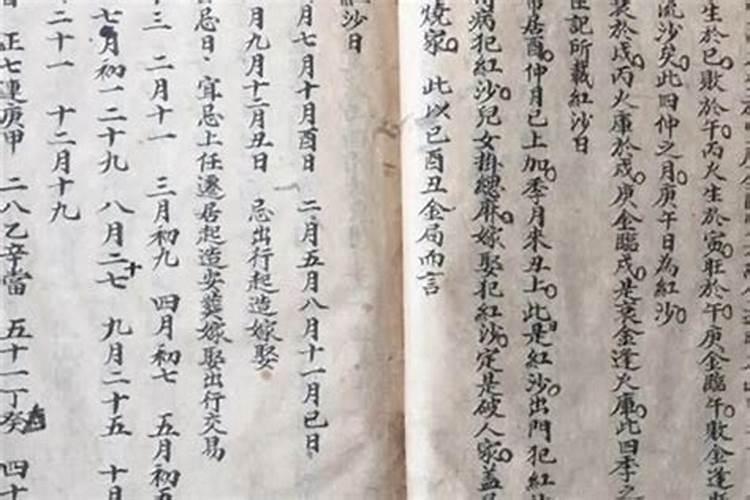 生於巳敗於午丙火生於寅旺於午庚金臨午敗金逢
流沙矣此四仲之月庚午日為紅沙
裝於戌丙火庫於戌庚金臨戌是衰金逢火庫此四季之
記所載紅沙日
居酉仲月巳上加季月來丑上此是紅沙出門犯紅
得病犯紅沙兒女掛總麻嫁娶犯紅沙定是破人家蓋
燒家 此以巳酉丑金局而言
紅沙日
月七月十月酉日 二月五月八月十一月巳日
月九月十二月丑日 忌出行起造嫁娶
忌日 宜忌上任遷居起造安葬嫁娶出行交易
十三 二月十一 三月初九 四月初七 五月初五
七月初一二十九 八月二十七 九月二十五 十月
二十一 十二月十九
正七連庚甲 二八乙辛當 五十一丁癸 四十